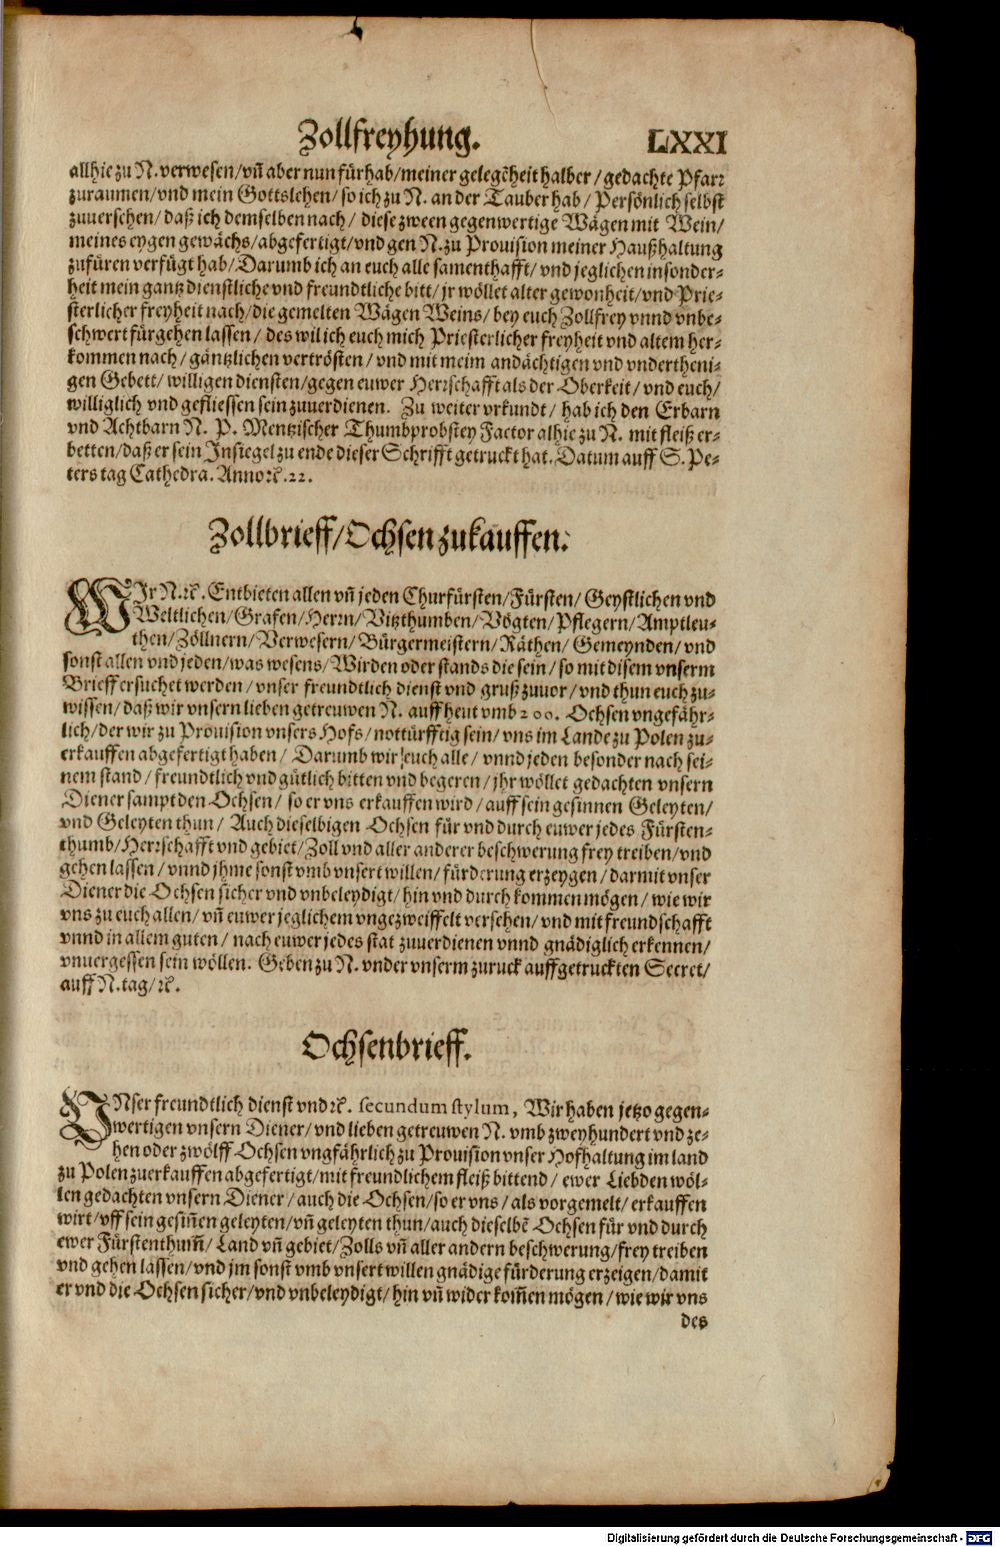 Zollfreyhung. LXXI
allhie zu N. verwesen/ vn̄ aber nun fürhab/ meiner gelegēheit halber/ gedachte Pfarr
zuraumen/ vnd mein Gottslehen/ so ich zu N. an der Tauber hab/ Persönlich selbst
zuuersehen/ daß ich demselben nach/ diese zween gegenwertige Wägen mit Wein/
meines eygen gewächs/ abgefertigt/ vnd gen N. zu Prouision meiner Haußhaltung
zufüren verfügt hab/ Darumb ich an euch alle samenthafft/ vnd jeglichen insonder⸗
heit mein gantz dienstliche vnd freundtliche bitt/ jr wöllet alter gewonheit/ vnd Prie⸗
sterlicher freyheit nach/ die gemelten Wägen Weins/ bey euch Zollfrey vnnd vnbe⸗
schwert fürgehen lassen/ des wil ich euch mich Priesterlicher freyheit vnd altem her⸗
kommen nach/ gäntzlichen vertrösten/ vnd mit meim andächtigen vnd vndertheni⸗
gen Gebett/ willigen diensten/ gegen euwer Herrschafft als der Oberkeit/ vnd euch/
williglich vnd gefliessen sein zuuerdienen. Zu weiter vrkundt/ hab ich den Erbarn
vnd Achtbarn N. P. Mentzischer Thumbprobstey Factor alhie zu N. mit fleiß er⸗
betten/ daß er sein Insiegel zu ende dieser Schrifft getruckt hat. Datum auff S. Pe⸗
ters tag Cathedra. Anno ꝛc. 22.
Zollbrieff/ Ochsen zukauffen.
WIr N. ꝛc. Entbieten allen vn̄ jeden Churfürsten/ Fürsten/ Geystlichen vnd
Weltlichen/ Grafen/ Herrn/ Vitzthumben/ Vögten/ Pflegern/ Amptleu⸗
then/ Zöllnern/ Verwesern/ Bürgermeistern/ Räthen/ Gemeynden/ vnd
sonst allen vnd jeden/ was wesens/ Wirden oder stands die sein/ so mit disem vnserm
Brieff ersuchet werden/ vnser freundtlich dienst vnd gruß zuuor/ vnd thun euch zu⸗
wissen/ daß wir vnsern lieben getreuwen N. auff heut vmb 200. Ochsen vngefähr⸗
lich/ der wir zu Prouision vnsers Hofs/ nottürfftig sein/ vns im Lande zu Polen zu⸗
erkauffen abgefertigt haben/ Darumb wir euch alle/ vnnd jeden besonder nach sei⸗
nem stand/ freundtlich vnd gütlich bitten vnd begeren/ jhr wöllet gedachten vnsern
Diener sampt den Ochsen/ so er vns erkauffen wird/ auff sein gesinnen Geleyten/
vnd Geleyten thun/ Auch dieselbigen Ochsen für vnd durch euwer jedes Fürsten⸗
thumb/ Herrschafft vnd gebiet/ Zoll vnd aller anderer beschwerung frey treiben/ vnd
gehen lassen/ vnnd jhme sonst vmb vnsert willen/ fürderung erzeygen/ darmit vnser
Diener die Ochsen sicher vnd vnbeleydigt/ hin vnd durch kommen mögen/ wie wir
vns zu euch allen/ vn̄ euwer jeglichem vngezweiffelt versehen/ vnd mit freundschafft
vnnd in allem guten/ nach euwer jedes stat zuuerdienen vnnd gnädiglich erkennen/
vnuergessen sein wöllen. Geben zu N. vnder vnserm zuruck auffgetruckten Secret/
auff N. tag/ ꝛc.
Ochsenbrieff.
VNser freundtlich dienst vnd ꝛc. secundum stylum, Wir haben jetzo gegen⸗
wertigen vnsern Diener/ vnd lieben getreuwen N. vmb zweyhundert vnd ze⸗
hen oder zwölff Ochsen vngfährlich zu Prouision vnser Hofhaltung im land
zu Polen zuerkauffen abgefertigt/ mit freundlichem fleiß bittend/ ewer Liebden wöl⸗
len gedachten vnsern Diener/ auch die Ochsen/ so er vns/ als vorgemelt/ erkauffen
wirt/ vff sein gesin̄en geleyten/ vn̄ geleyten thun/ auch dieselbē Ochsen für vnd durch
ewer Fürstenthum̄/ Land vn̄ gebiet/ Zolls vn̄ aller andern beschwerung/ frey treiben
vnd gehen lassen/ vnd jm sonst vmb vnsert willen gnädige fürderung erzeigen/ damit
er vnd die Ochsen sicher/ vnd vnbeleydigt/ hin vn̄ wider kom̄en mögen/ wie wir vns
des
Digitalisierung gefördert durch die Deutsche Forschungsgemeinschaft - DFG